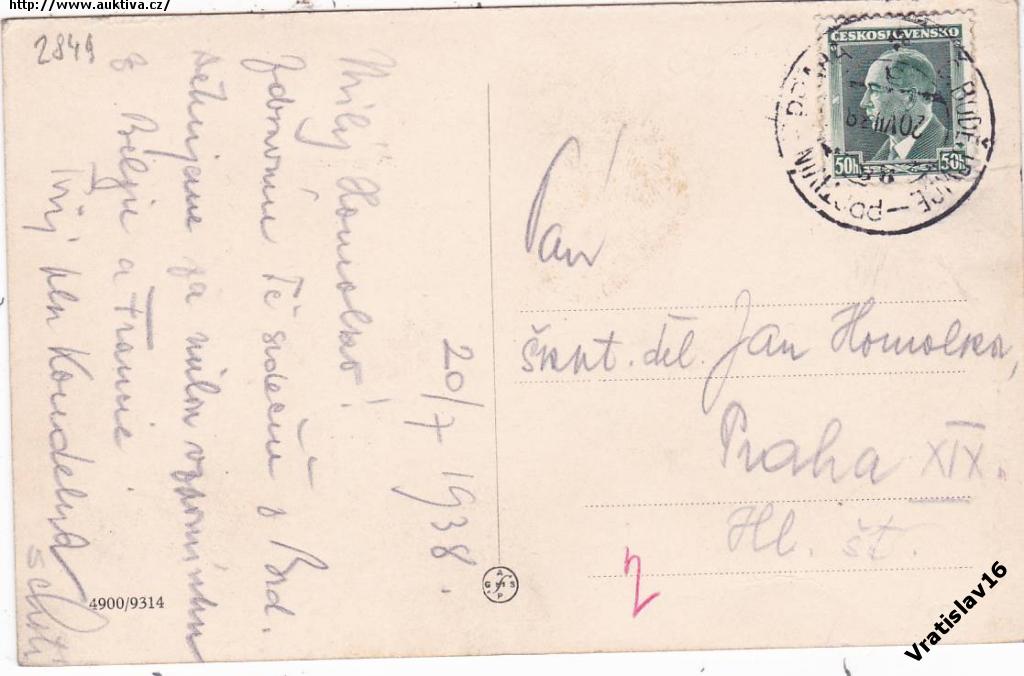 http://www.auktiva.cz/
2849
Milý Homolko!
Zdravím Tě srdečně z Brd.
Děkujeme za milou vzpomínku
z Belgie a Francie
Tvůj
20/7 1938.
4900/9314
A
G S
P
ČESKOSLOVENSKO
50h 50h
20 VII 38
Pán
škpt. děl. Jan Homolka,
Praha XIX.
Hl. št.
Vratislav16